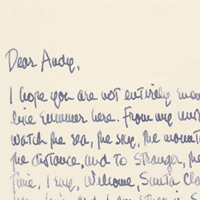 Dear Andy,
I hope you are not entirely
like summer here. From my
watch the sea, the sky, the mount
the distance, and to stranger, the
time, I say, Welcome, Santa Cla